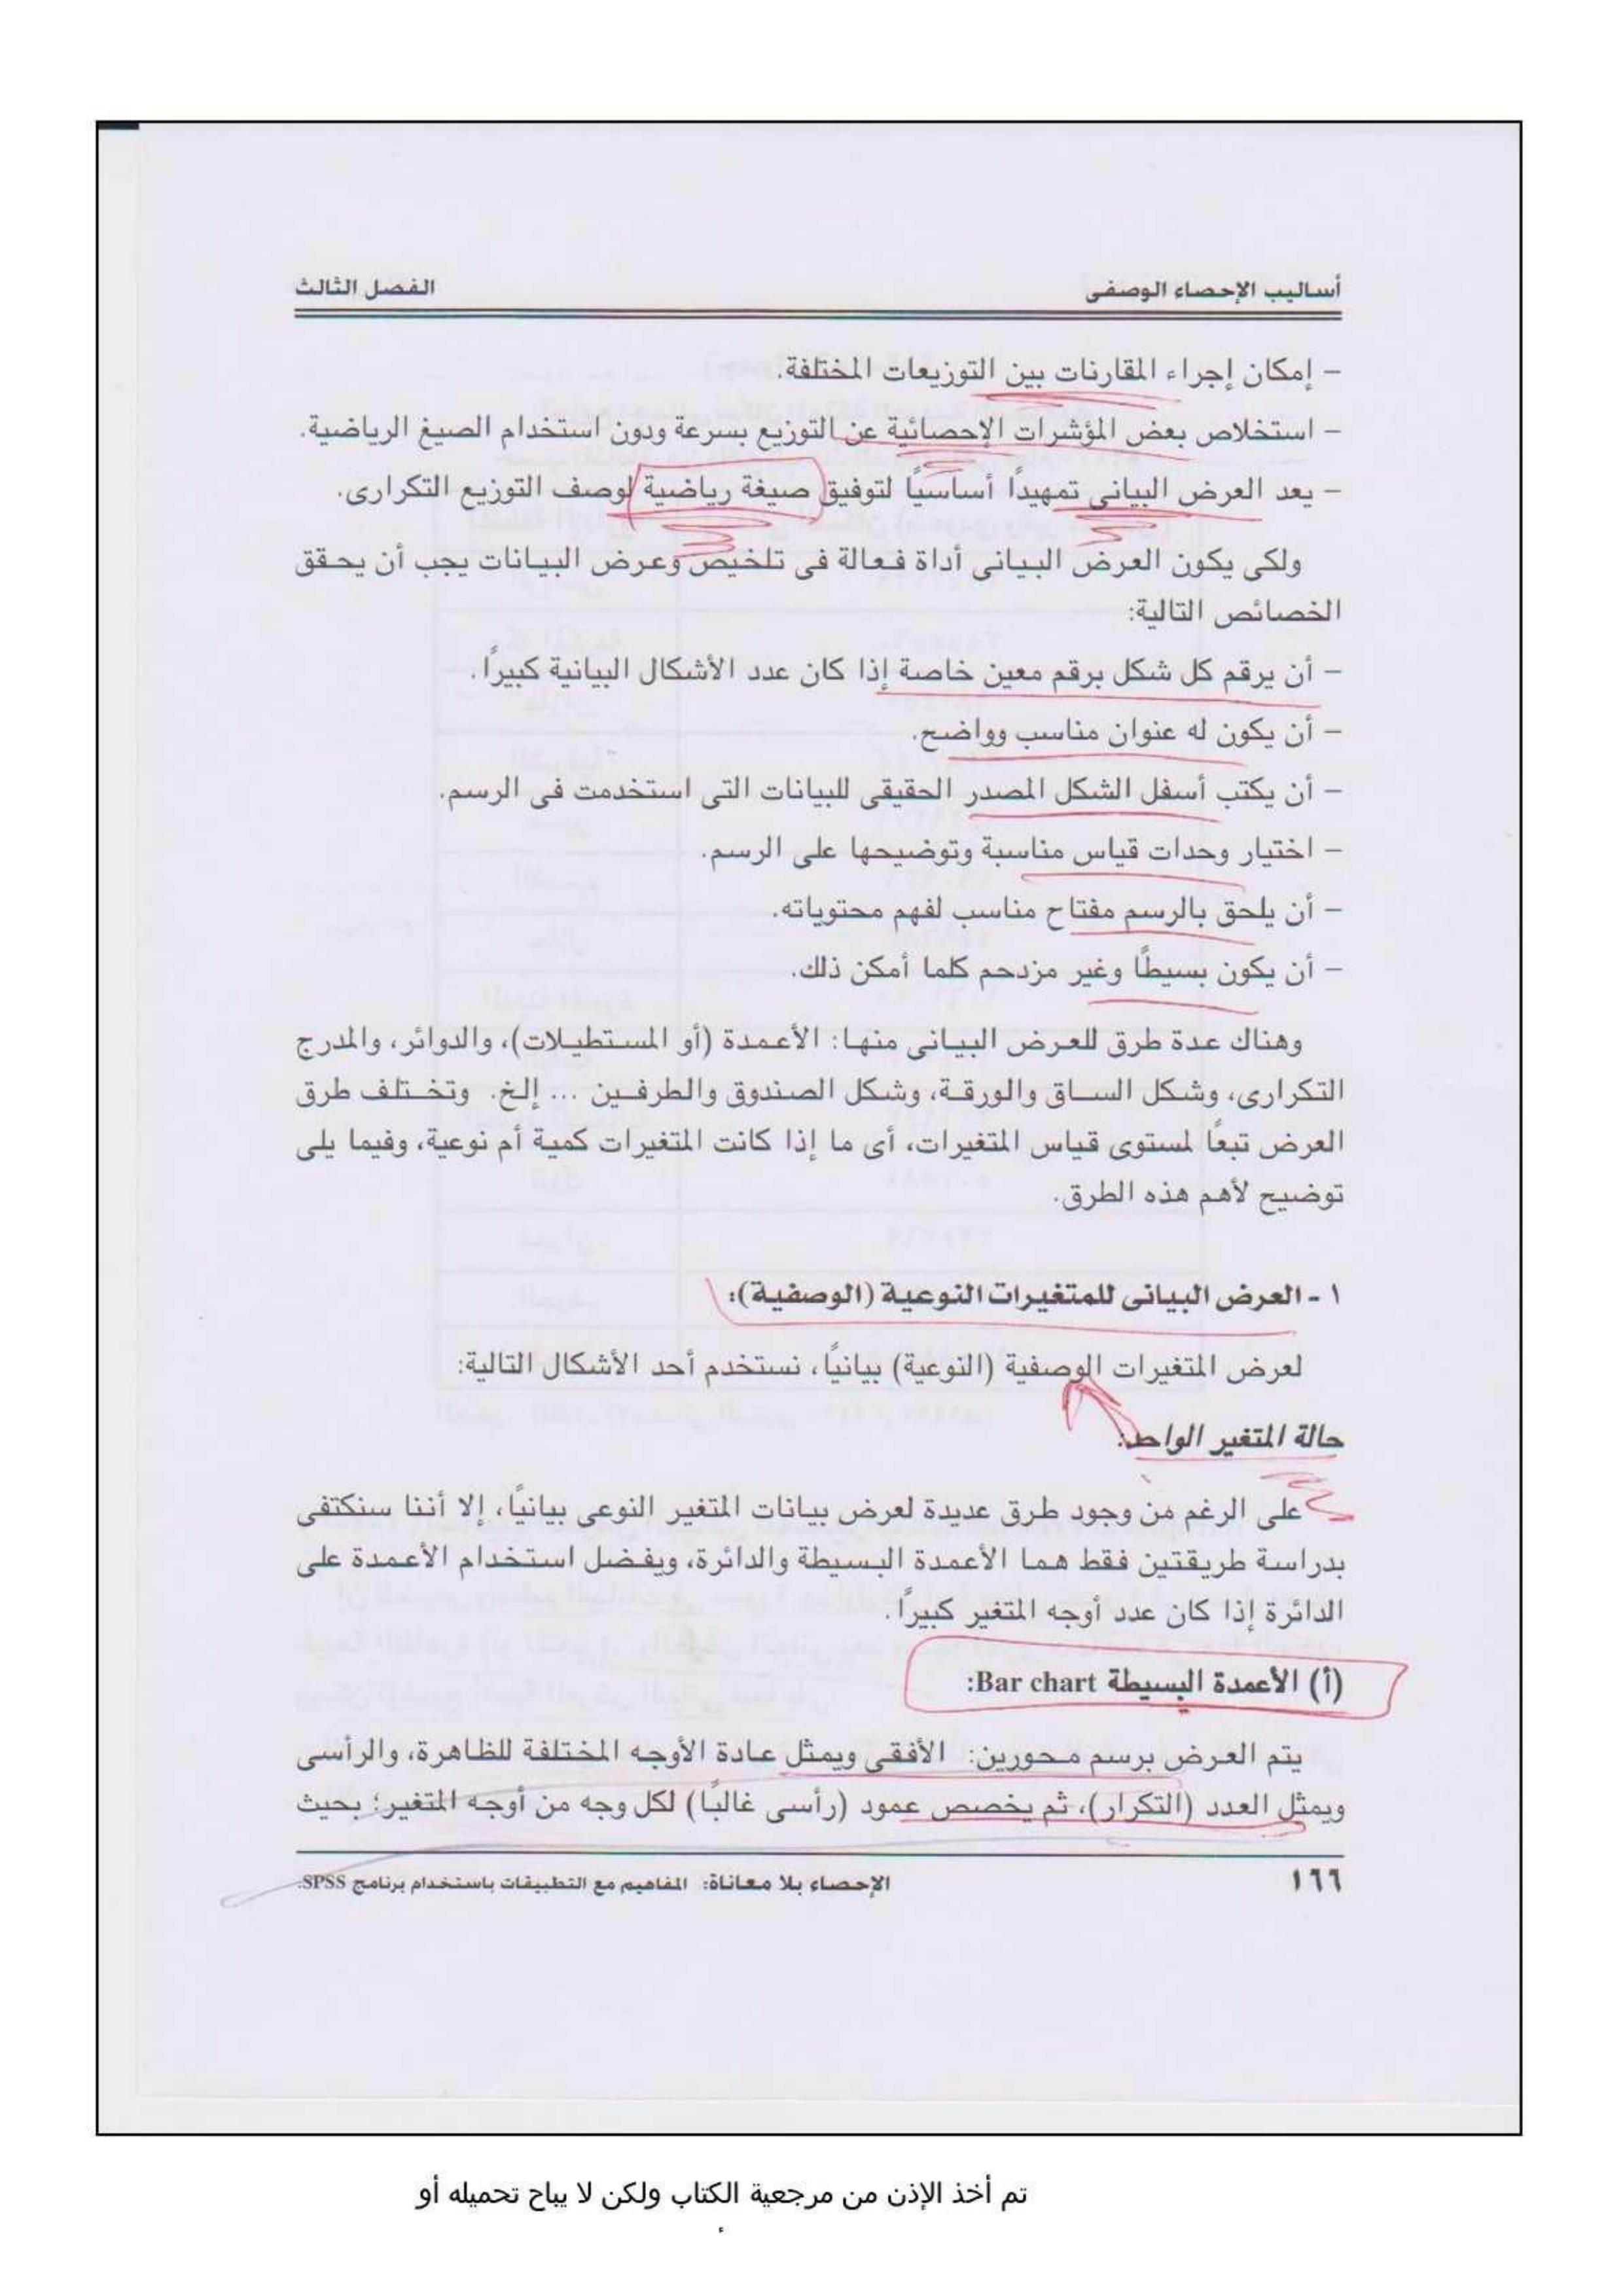 أساليب الإحصاء الوصفى الفصل الثالث
- إمكان إجراء المقارنات بين التوزيعات المختلفة.
- استخلاص بعض المؤشرات الإحصائية عن التوزيع بسرعة ودون استخدام الصيغ الرياضية.
- يعد العرض البيانى تمهيداً أساسياً لتوفيق صيغة رياضية لوصف التوزيع التكرارى.
ولكى يكون العرض البيانى أداة فعالة فى تلخيص وعرض البيانات يجب أن يحقق
الخصائص التالية:
- أن يرقم كل شكل برقم معين خاصة إذا كان عدد الأشكال البيانية كبيراً.
- أن يكون له عنوان مناسب وواضح.
- أن يكتب أسفل الشكل المصدر الحقيقى للبيانات التى استخدمت فى الرسم.
- اختيار وحدات قياس مناسبة وتوضيحها على الرسم.
- أن يلحق بالرسم مفتاح مناسب لفهم محتوياته.
- أن يكون بسيطًا وغير مزدحم كلما أمكن ذلك.
وهناك عدة طرق للعرض البيانى منها: الأعمدة (أو المستطيلات)، والدوائر، والمدرج
التكرارى، وشكل الساق والورقة، وشكل الصندوق والطرفين ... إلخ. وتختلف طرق
العرض تبعًا لمستوى قياس المتغيرات، أى ما إذا كانت المتغيرات كمية أم نوعية، وفيما يلى
توضيح لأهم هذه الطرق.
١ - العرض البيانى للمتغيرات النوعية (الوصفية):
لعرض المتغيرات الوصفية (النوعية) بيانيًا، نستخدم أحد الأشكال التالية:
حالة المتغير الواحد:
على الرغم من وجود طرق عديدة لعرض بيانات المتغير النوعى بيانيًا، إلا أننا سنكتفى
بدراسة طريقتين فقط هما الأعمدة البسيطة والدائرة، ويفضل استخدام الأعمدة على
الدائرة إذا كان عدد أوجه المتغير كبيراً.
(أ) الأعمدة البسيطة Bar chart:
يتم العرض برسم محورين: الأفقى ويمثل عادة الأوجه المختلفة للظاهرة، والرأسى
ويمثل العدد (التكرار)، ثم يخصص عمود (رأسى غالبًا) لكل وجه من أوجه المتغير؛ بحيث
١٦٦ الإحصاء بلا معاناة: المفاهيم مع التطبيقات باستخدام برنامج SPSS.
تم أخذ الإذن من مرجعية الكتاب ولكن لا يباح تحميله أو